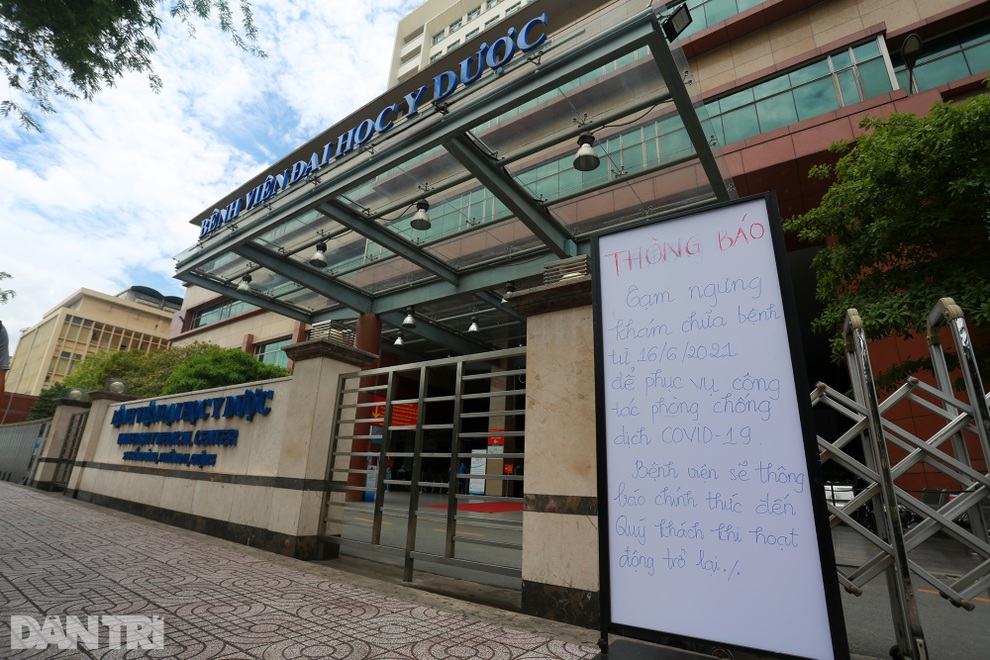 BỆNH VIỆN ĐẠI HỌC Y DƯỢC
BỆNH VIỆN ĐẠI HỌC Y DƯỢC
UNIVERSITY MEDICAL CENTER
THÔNG BÁO
Tạm ngưng
khám chữa bệnh
từ 16/6/2021
để phục vụ công
tác phòng chống
dịch COVID-19
Bệnh viện sẽ thông
báo chính thức đến
Quý khách khi hoạt
động trở lại./.
DÂN TRÍ